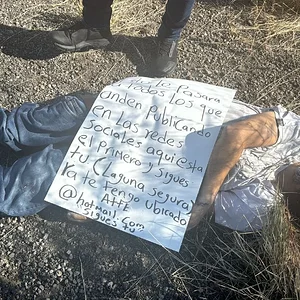 le pasara
todos los que
anden Publicando
en las redes
Sociales aqui esta
el Primero y Sigues
tu, (Laguna segura)
Ya te tengo ubicado
Att
@hotmail.com
sigues tu